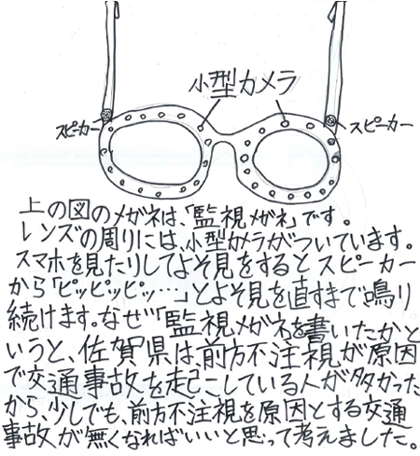 小型カメラ
スピーカー
スピーカー
上の図のメガネは、「監視メガネ」です。
レンズの周りには、小型カメラがついています。
スマホを見たりしてよそ見をするとスピーカー
から「ピッピッピッ…」とよそ見を直すまで鳴り
続けます。なぜ「監視メガネを書いたかと
いうと、佐賀県は、前方不注視が原因
で交通事故を起こしている人が多かった
から、少しでも、前方不注視を原因とする交通
事故が無くなればいいと思って考えました。